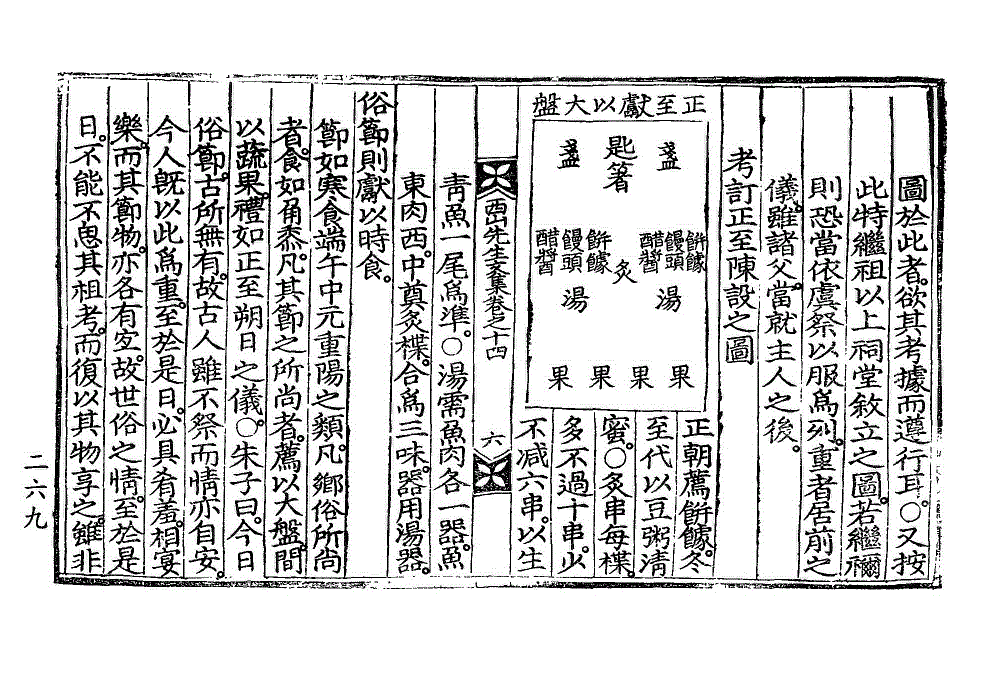 圖於此者。欲其考據而遵行耳。○又按
此特繼祖以上祠堂敘立之圖。若繼禰
則恐當依虞祭以服爲列。重者居前之
儀。雖諸父。當就主人之後。
考訂正至陳設之圖
正至獻以大盤
盞 匙箸 盞
餠 饅頭 醋醬 湯
炙
餠 饅頭 醋醬 湯
果 果 果 果
正朝薦餠。冬
至代以豆粥淸
蜜。○炙串每楪。
多不過十串。少
不減六串。以生
西山先生文集卷之十四 六
靑魚一尾爲準。○湯需魚肉各一器。魚
東肉西。中奠炙楪。合爲三味。器用湯器。
俗節則獻以時食。
節如寒食端午中元重陽之類。凡鄕俗所尙
者。食如角黍。凡其節之所尙者。薦以大盤。間
以蔬果。禮如正至朔日之儀。○朱子曰。今日
俗節。古所無有。故古人雖不祭而情亦自安。
今人旣以此爲重。至於是日。必具肴羞。相宴
樂。而其節物。亦各有宜。故世俗之情。至於是
日。不能不思其祖考。而復以其物享之。雖非
二六九